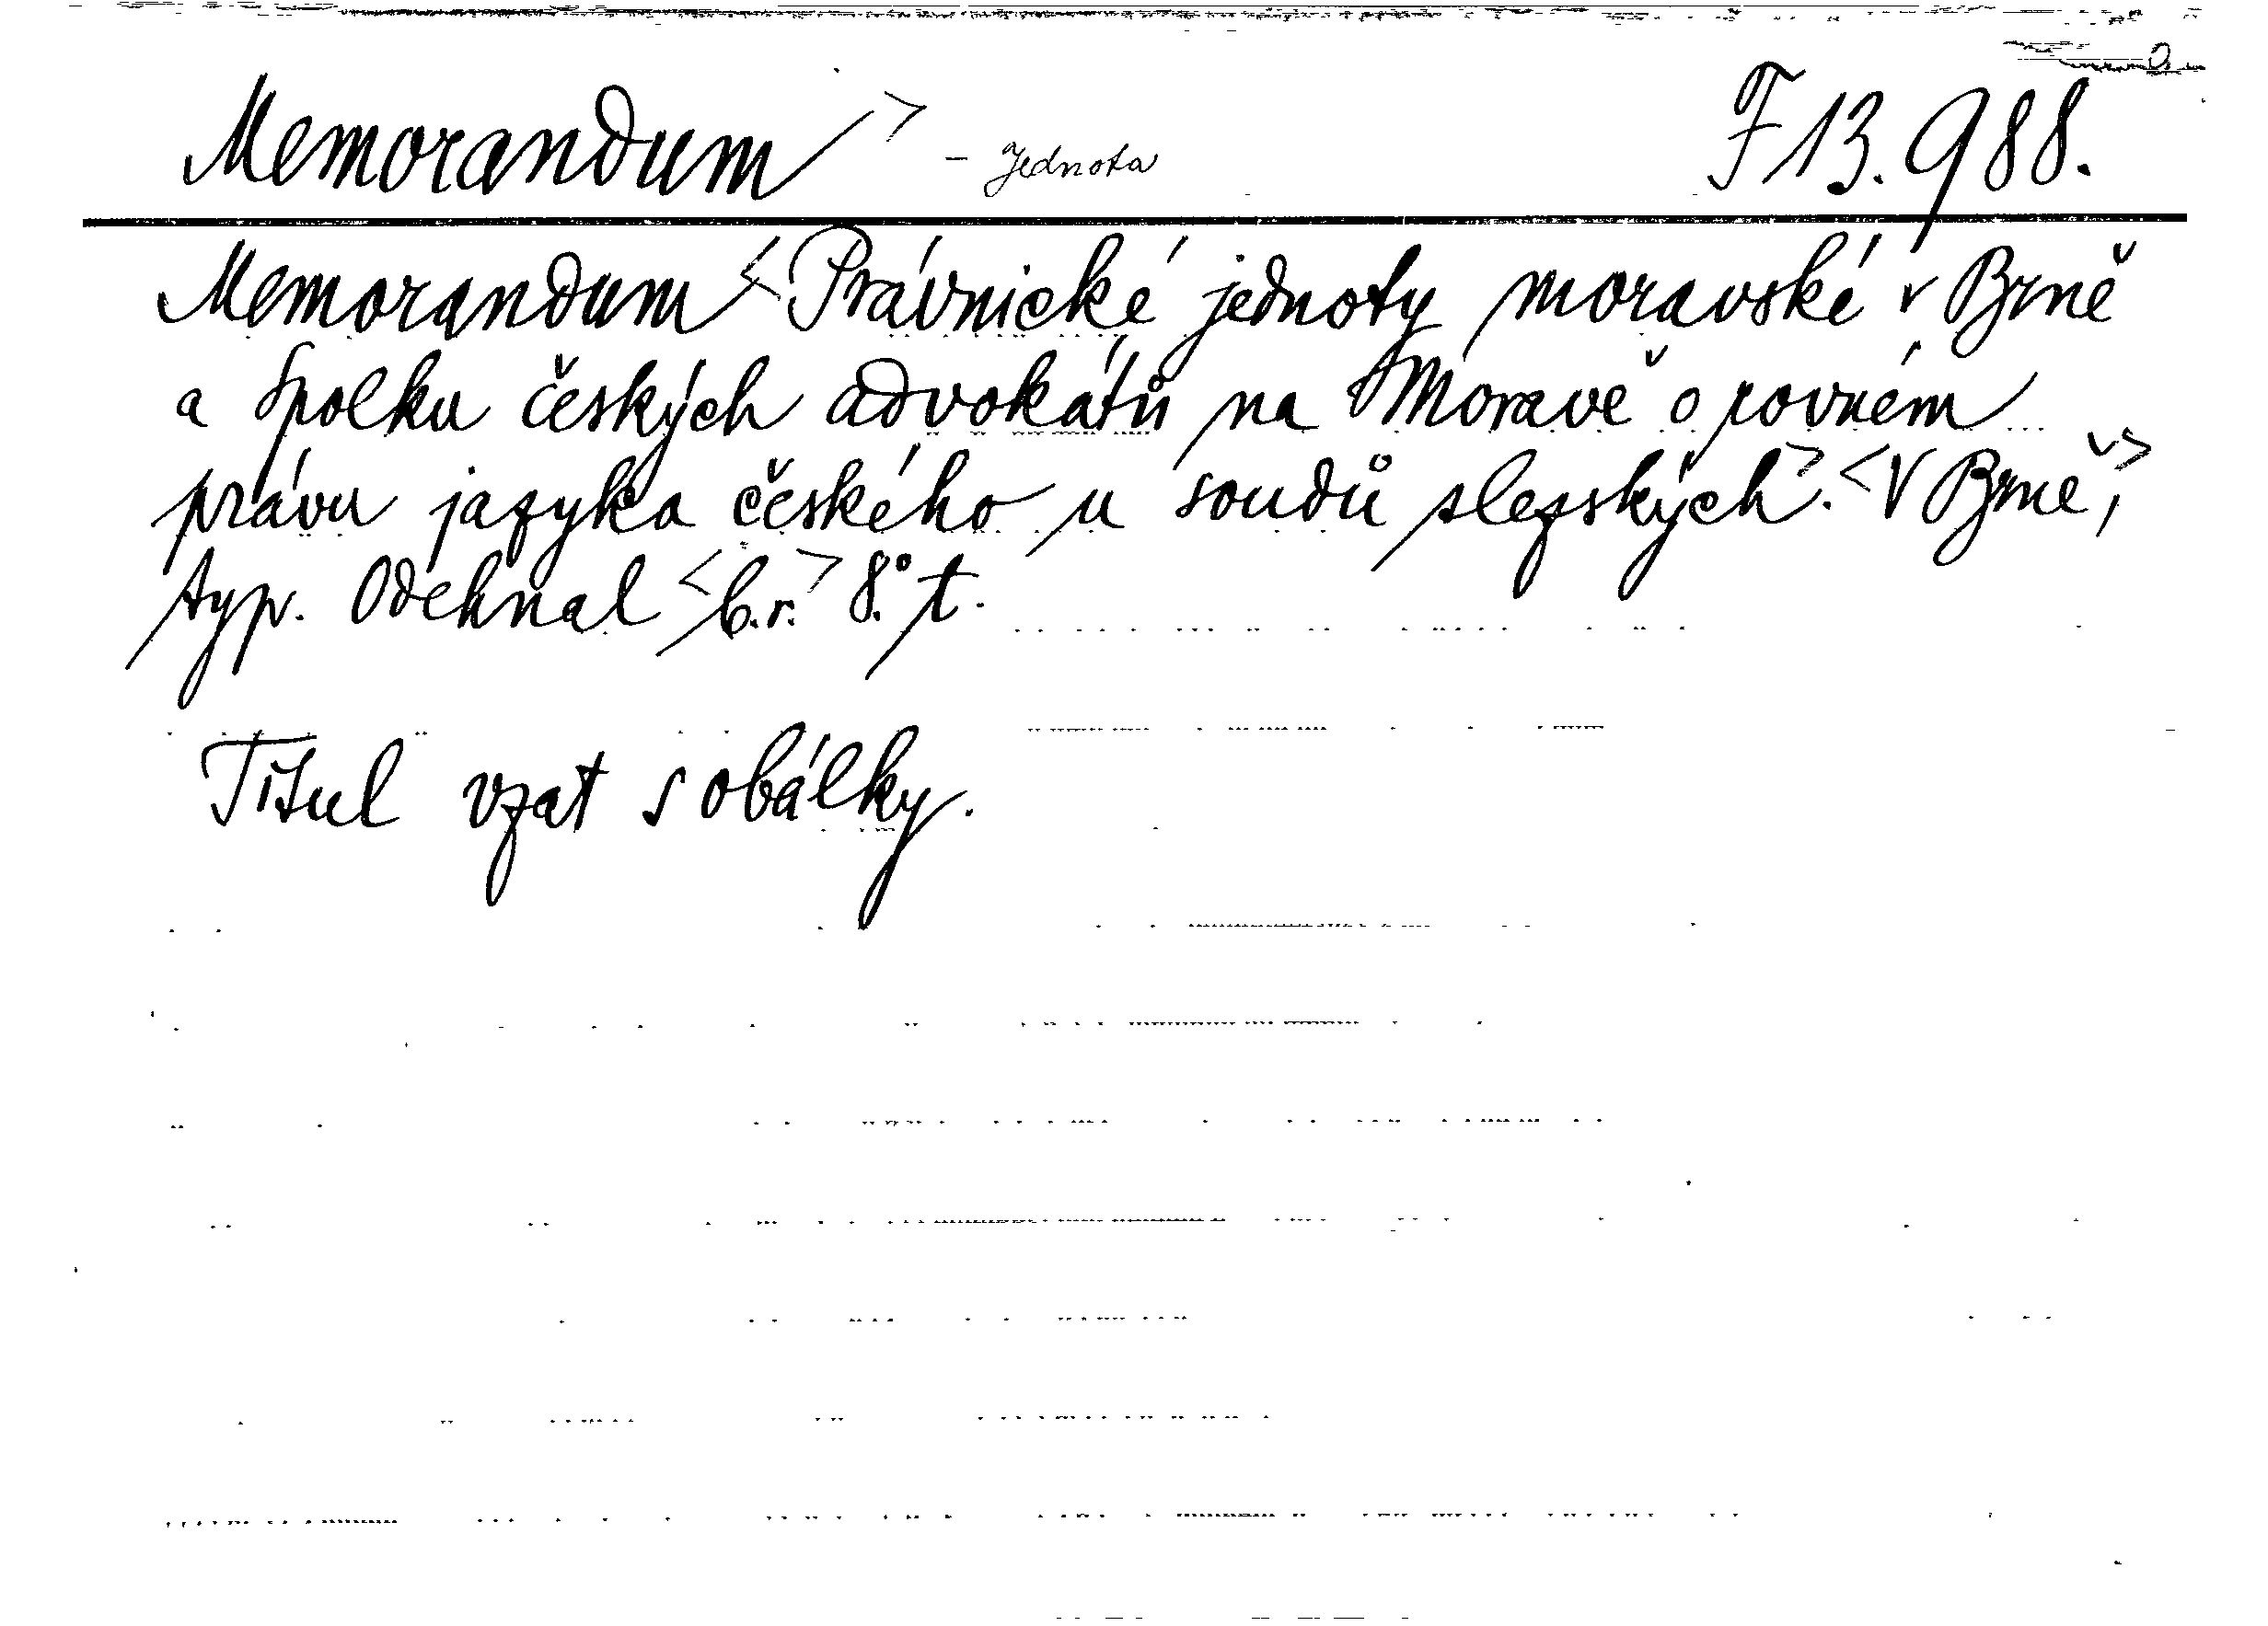 Memorandum > - Jednota F 13.988.
Memorandum < Právnické jednoty moravské v Brně
a Spolku českých advokátů na Moravě o rovném
právu jazyka českého u soudů slezských >. < V Brně, >
typ. Odehnal < b.r. > 8.° t.
Titul vzat s obálky.